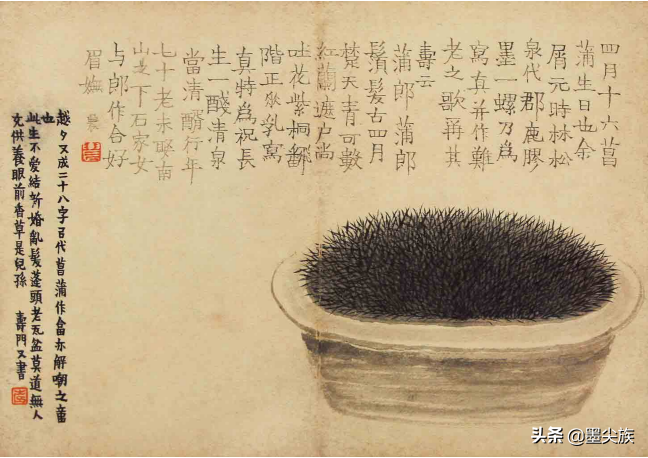 四月十六菖
蒲生日也余
屑元時林松
泉代郡鹿膠
墨一螺乃為
寫真并作難
老之歌稱其
壽云
蒲郎蒲郎
鬚髮古四月
楚天青可數
紅蘭遮户尚
吐花紫桐翻
階正飲乳窩
真特為祝長
生一醆清泉
當清醑行年
七十老未娶南
山之下石家女
与郎作合好
眉嫵 農
越夕又成二十八字㠯代菖蒲作畣亦解嘲之意
也
此生不爱結新婚亂髮蓬頭老瓦盆莫道無人
充供養眼前香草是兒孫 壽門又書
头条 @墨尖族